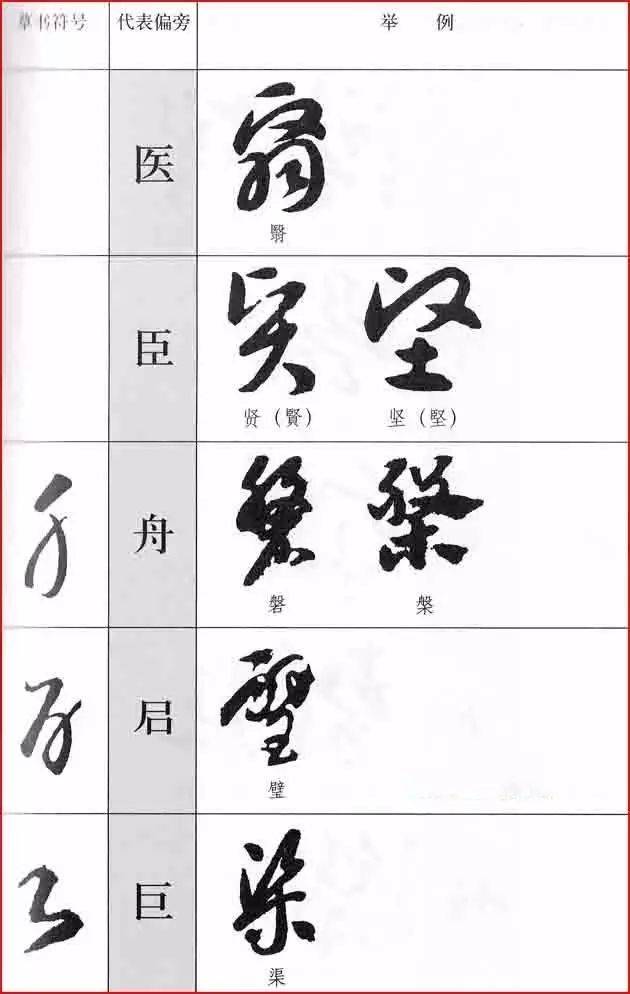 草书符号 代表偏旁 举例
医
翳
臣
贤（賢） 坚（堅）
舟
磐 槃
𠂤
璧
巨
渠